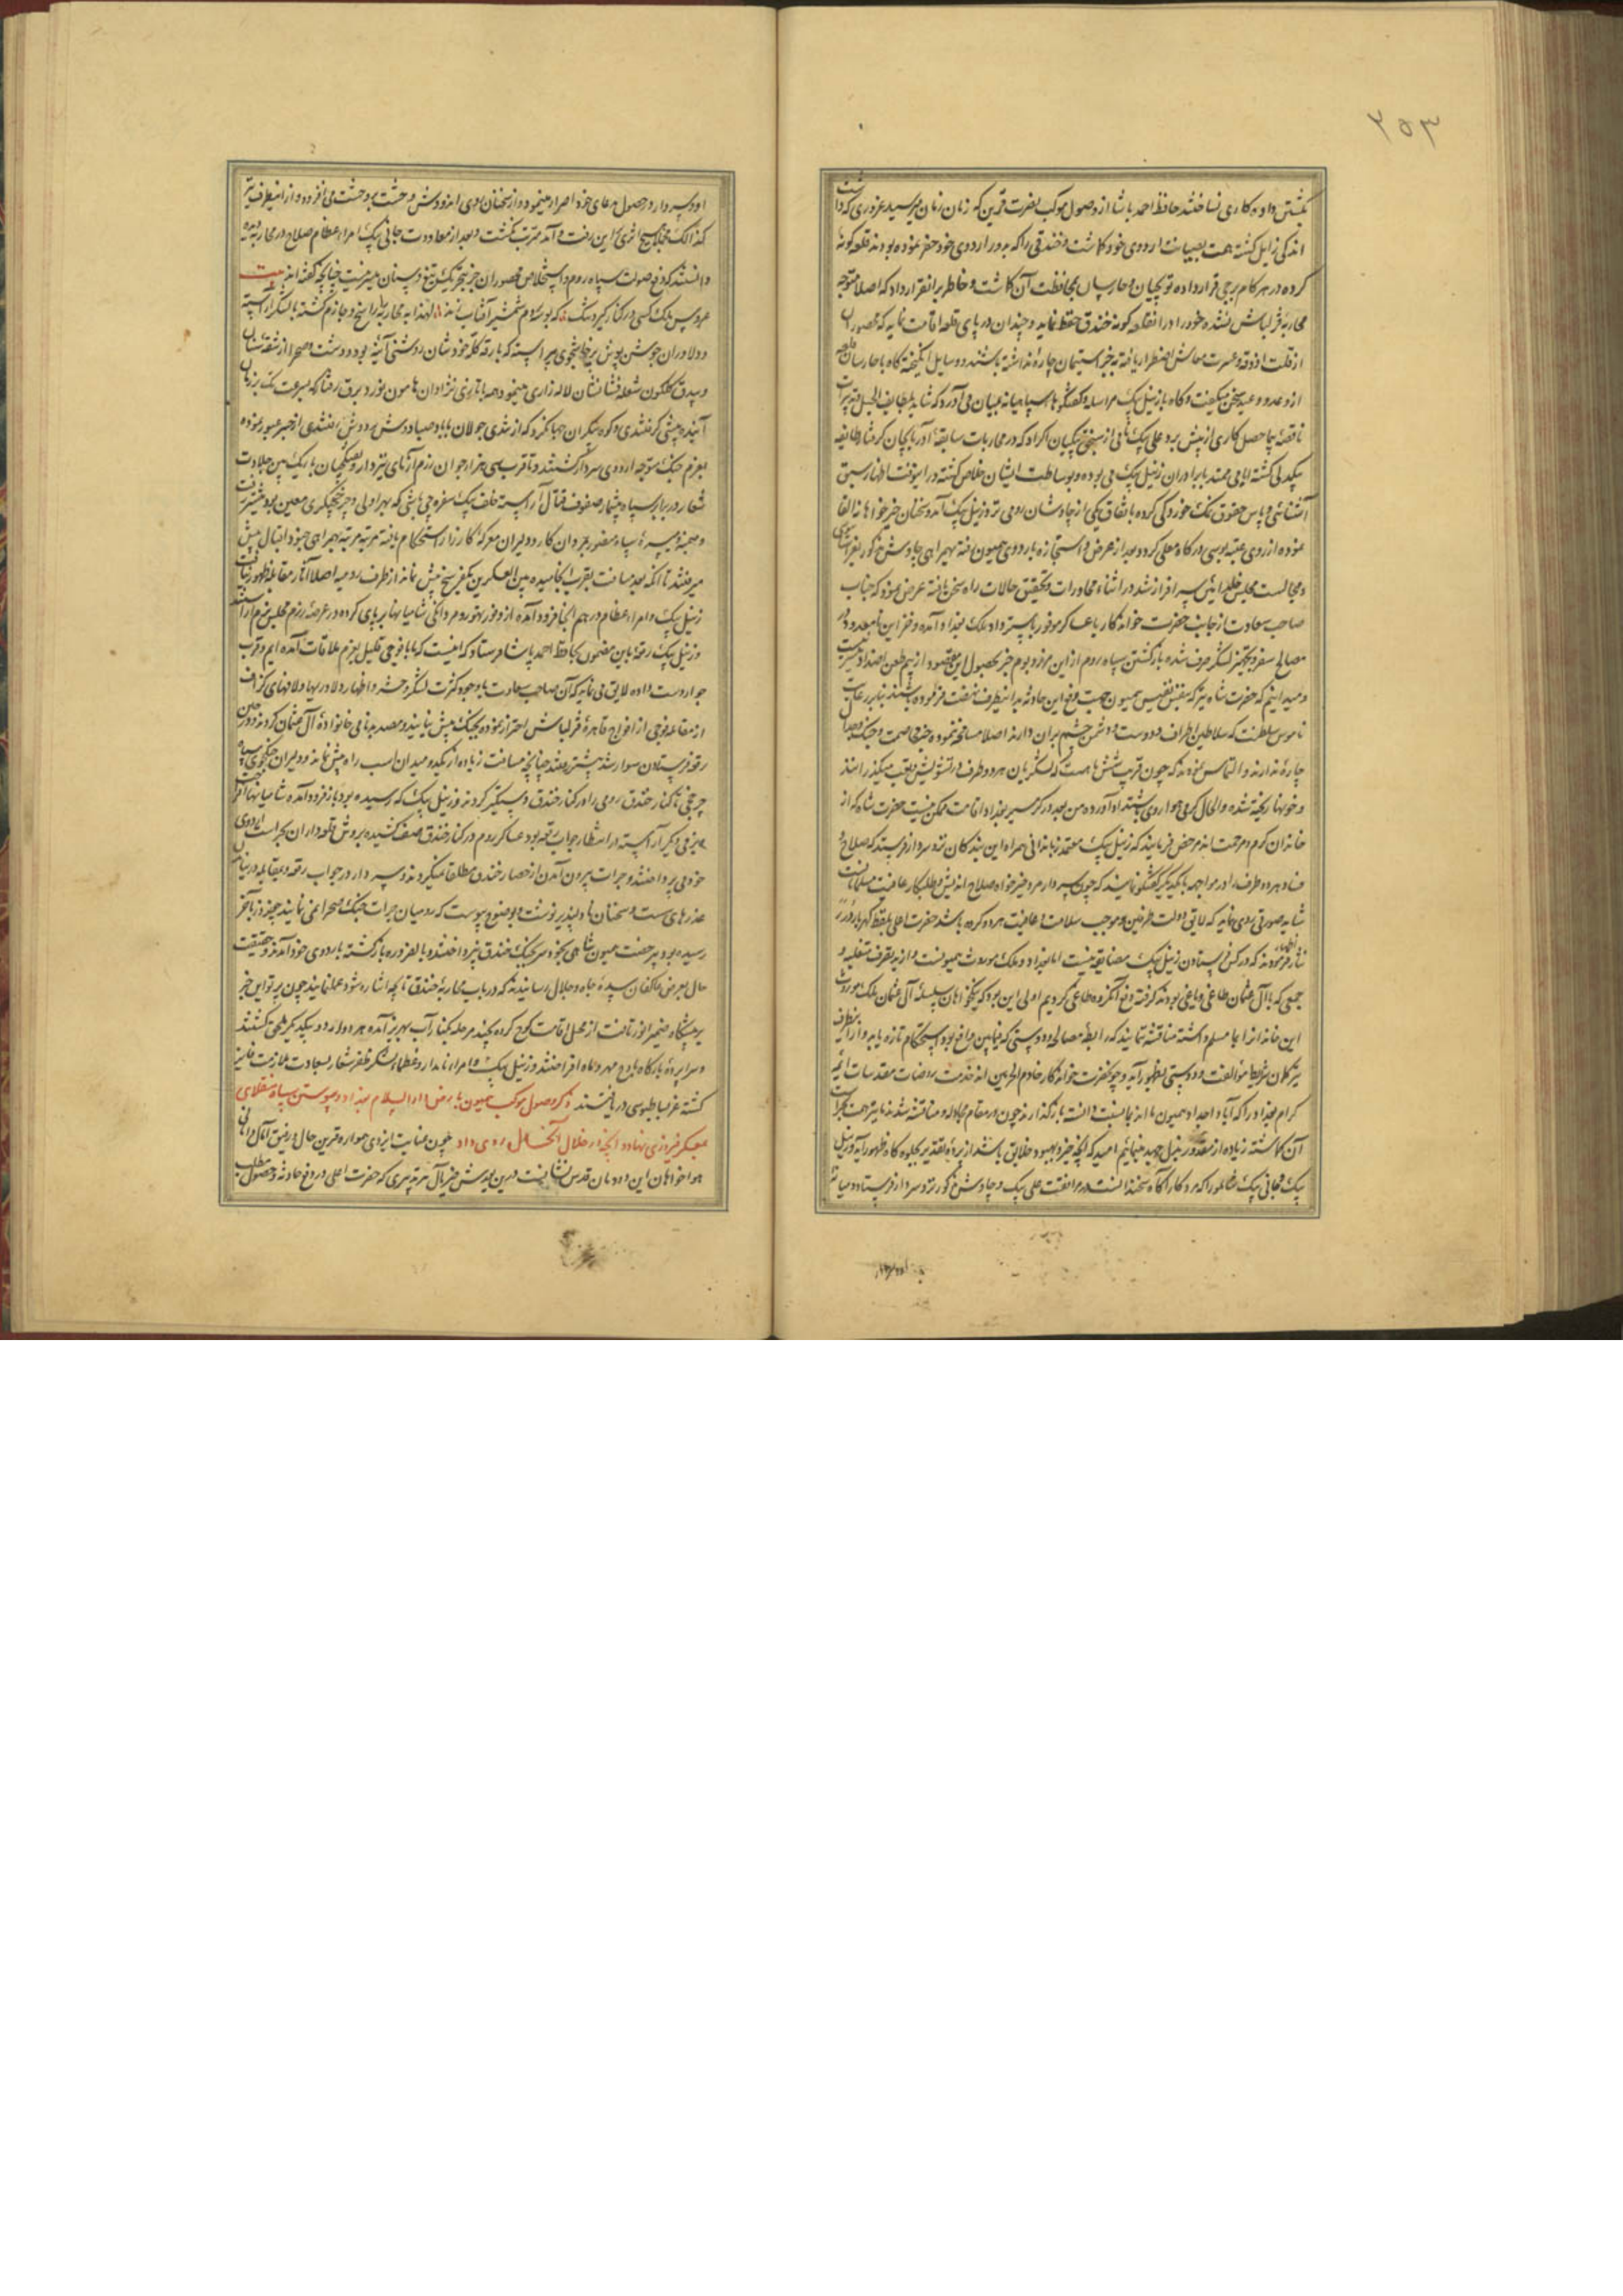 ۲۵۳
بکشتن داده کاری نساختند حافظ احمد پاشا از وصول موکب نصرت قرین که زمان زمان میرسید غروری که داشت
اندکی زایل کشته همت بصیانت اردوی خود کماشت و خندقی را که بر دور اردوی خود حفر نموده بودند قلعه کونه
کرده در هر کدام برجی قرار داده توپچیان و حارسان بمحافظت آن کماشت و خاطر بر آن قرار داد که اصلا متوجه
محاربه قزلباش نشده خود را در آن قلعه کونه خندق حفظ نماید و چندان در پای قلعه اقامت نماید که محصوران
از قلت آذوقه و عسرت معاش اضطرار یافته بجز استیمان چاره نداشته باشند و وسایل انکیخته کاه با حارسان قلعه
از وعده و وعید سخن میکفت و کاه با زینل بیک مراسله و کفتکوهای سپاهیانه بمیان می آورد که شاید بلطایف الحیل
ناقصه پیما حصل کاری از پیش برد و علی بیک نامی از سنجق بیکیان اکراد که در محاربات سابقه آذربایجان کرفتار طایفه
بیکدلی کشته ایامی ممتد با برادران زینل بیک می بوده و بوساطت ایشان خلاص کشته در این وقت اظهار سبق
آشنائی و پاس حقوق نمک خوردکی کرده باتفاق یکی از چاوشان رومی نزد زینل بیک آمده سخنان خیرخواهانه القا
نموده آرزوی عتبه بوسی درکاه معلی کرد و بعد از عرض و استجازه باردوی همیون آمده بهمراهی چاوش مذکور بعز بساط بوسی
و مجالست مجلس خلد آئین سرافراز شد در اثناء محاورات و تحقیق حالات راه سخن یافته عرض نمود که جناب
صاحب سعادت از جانب حضرت خواندکار با عساکر موفور باسترداد ملک بغداد آمده
مصالح سفر و تجهیز لشکر صرف شده باز کشتن سپاه روم از این مرز و بوم جز بحصول این مقصود از بیم طعن اضداد میسر نیست
و میدانیم که حضرت شاه نیز که بنفس نفیس همیون جهت دفع این حادثه بدین طرف نهضت فرموده باشند بنا بر رعایت
ناموس سلطنت که سلاطین اطراف و دوست و دشمن چشم بر آن دارند اصلا مسامحه ننموده جز خصومت و جنک و جدال
چاره ندارند و التماس نمودند که چون قریب شش ماه است که لشکریان هر دو طرف در تشویش و تعب میکذرانند
و خونها ریخته شده و الحال کرمی هوا روی باشتداد آورده من بعد در کرمسیر بغداد اقامت ممکن نیست حضرت شاه که از
خاندان کرم و مرحمت اند مرخص فرمایند که زینل بیک معتمد زبان دانی همراه این بندکان نزد سردار فرستد که صلاح و
فساد هر دو طرف را در مواجهه با یکدیکر کفتکو نمایند که چون سردار مرد خیرخواه صلاح اندیش و طلبکار عافیت مسلمانان است
شاید صورتی روی نماید که لایق دولت طرفین و موجب سلامت و عافیت هر دو کروه باشد حضرت اعلی بلفظ کهربار درر
نثار فرمودند که در کس فرستادن زینل بیک مضایقه نیست اما بغداد ملک موروث همیون ماست و از ید تصرف متغلبه
جمعی که با آل عثمان طاغی و یاغی بودند کرفته دفع آنکروه طاغی کردیم اولی این بود که نیکخواهان سلسله آل عثمان ملک موروث
این خاندان را بما مسلم داشته مناقشه ننمایند که رابطه مصالحه و دوستی که فیمابین واقع بود استحکام تازه یابد و از اینطرف
نیز کمال شرایط موالفت و دوستی بظهور آید و چون حضرت خواندکار خادم الحرمین اند خدمت روضات مقدسات ائمه
کرام بغداد را که آبا و اجداد همیون ما اند بما مناسبت دانسته بازکذارند چون در مقام مجادله و مناقشه شدند ما نیز همت بحراست
آن کماشته زیاده از مقدور بذل جهد مینمائیم امید که آنچه خیر و بهبود خلایق باشد از پرده تقدیر بجلوه کاه ظهور آید و زینل
بیک قبانی بیک شاملو را که مرد کار آکاه سخندانست بمرافقت علی بیک و چاوش مذکور نزد سردار فرستاد و میانه
او و سردار
او و سردار در حصول مدعای خود اصرار مینمود و از سخنان او وحشت بر وحشت می افزود و از این طرف نیز
کذالک مجملا هیچ اثری بر این رفت و آمد مترتب نکشت و بعد از معاودت جانی بیک امراء عظام صلاح در محاربه دیده
دانستند که دفع صولت سپاه روم و استخلاص محصوران جز بتحریک تیغ و سنان میسر نیست چنانچه کفته اند بیت
عروس ملک کسی در کنار کیرد تنک که بوسه بر دم شمشیر آبدار زند لهذا بمحاربه راسخ و جازم کشته با لشکر آراسته
و دلاوران جوشن پوش پرخاشجوی پیراسته که بارقه کلاه خودشان روشنی آئینه بود و دشت و صحرا از شقه سنان
و بیدق کلکون شعله فشانشان لاله زاری مینمود همه با تازی نژادان هامون نورد برق رفتار که بسرعت تک بر زمان
آینده پیشی کرفتندی و کوه پیکران صبا تک که از تندی جولان با باد صبا دوش بدوش رفتندی از جسر عبور نموده
بعزم جنک متوجه اردوی سردار کشتند و تا قریب سی هزار جوان رزم آزمای نیزه دار و تفنکچیان باریک بین جلادت
شعار در برابر سپاه بیشمار صفوف قتال آراسته خلف بیک سفره چی باشی که بهراولی و چرخچیکری معین بود پیشتر رفت
و میمنه و میسره سپاه منصور بمردان کار و دلیران معرکه کارزار استحکام یافته مرتبه مرتبه بهمراهی جنود اقبال پیش
میرفتند تا آنکه بعد مسافت بقرب انجامیده بین العسکرین یکفرسخ بیش نماند از طرف رومیه اصلا آثار مقابله ظهور نیافت
زینل بیک و امراء عظام در هم آنجا فرود آمده از وفور تهور و مردانکی شامیانها بر پای کرده در عرصه رزم مجلس بزم آراستند
و زینل بیک رقعه باین مضمون بحافظ احمد پاشا فرستاد که اینست که ما با فوجی قلیل بعزم ملاقات آمده ایم و قرب
جوار دست داده لایق می نماید که آن صاحب سعادت با وجود کثرت لشکر و حشر و اظهار دلاوریها و لافهای کزاف
از مقابله فوجی از افواج قاهره قزلباش احتراز نموده بجنک پیش نیایند و مصدر بدنامی خانواده آل عثمان کردند و در حین
رقعه فرستادن سوار شده پیشتر رفتند چنانچه مسافت زیاده از یک دو میدان اسب راه پیش نماند و دلیران جنکجوی سپاه
چرخچی تا کنار خندق رومی را در کنار خندق دستکیر کردند و زینل بیک که رسیده بود باز فرود آمده شامیانها افراخت
بزمی دیکر آراسته در انتظار جواب رقعه بود عساکر روم در کنار خندق صف کشیده بروش قلعه داران بحراست اردوی
خود می پرداختند و جرات بیرون آمدن از حصار خندق مطلقا نمیکردند و سردار در جواب رقعه و مقابله در نیامدن
عذرهای سست و سخنان نا دلپذیر نوشت و بوضوح پیوست که رومیان جرات جنک صحرا نمی نمایند چون روز بآخر
رسیده بود بی رخصت همیون شاهی بخود سر بجنک خندق نپرداختند و بالضروره باز کشته باردوی خود آمدند و حقیقت
حال بعرض عاکفان سده جاه و جلال رسانیدند که در باب محاربه خندق تا چه اشاره شود عمل نمایند چون پرتو این خبر
بر پیشکاه ضمیر انور تافت از محل اقامت کوچ کرده بچند مرحله بکنار آب بهرز آمده هر دو اردو بیکدیکر ملحق کشتند
و سراپرده بارکاه باوج مهر و ماه افراختند و زینل بیک و امراء نامدار و عظماء لشکر ظفر شعار بسعادت ملازمت فایز
کشته عز بساطبوسی دریافتند ذکر وصول موکب همیون بارض دار السلام بغداد و پیوستن سپاه منقلای
بمعسکر فیروزی بنهاد و آنچه در خلال آنحال روی داد چون عنایت ایزدی همواره قرین حال و رفیق آمال
هواخواهان این دودمان قدس نشانست در این یورش خیر مآل هر تدبیری که حضرت اعلی در دفع حادثه و حصول مطلب